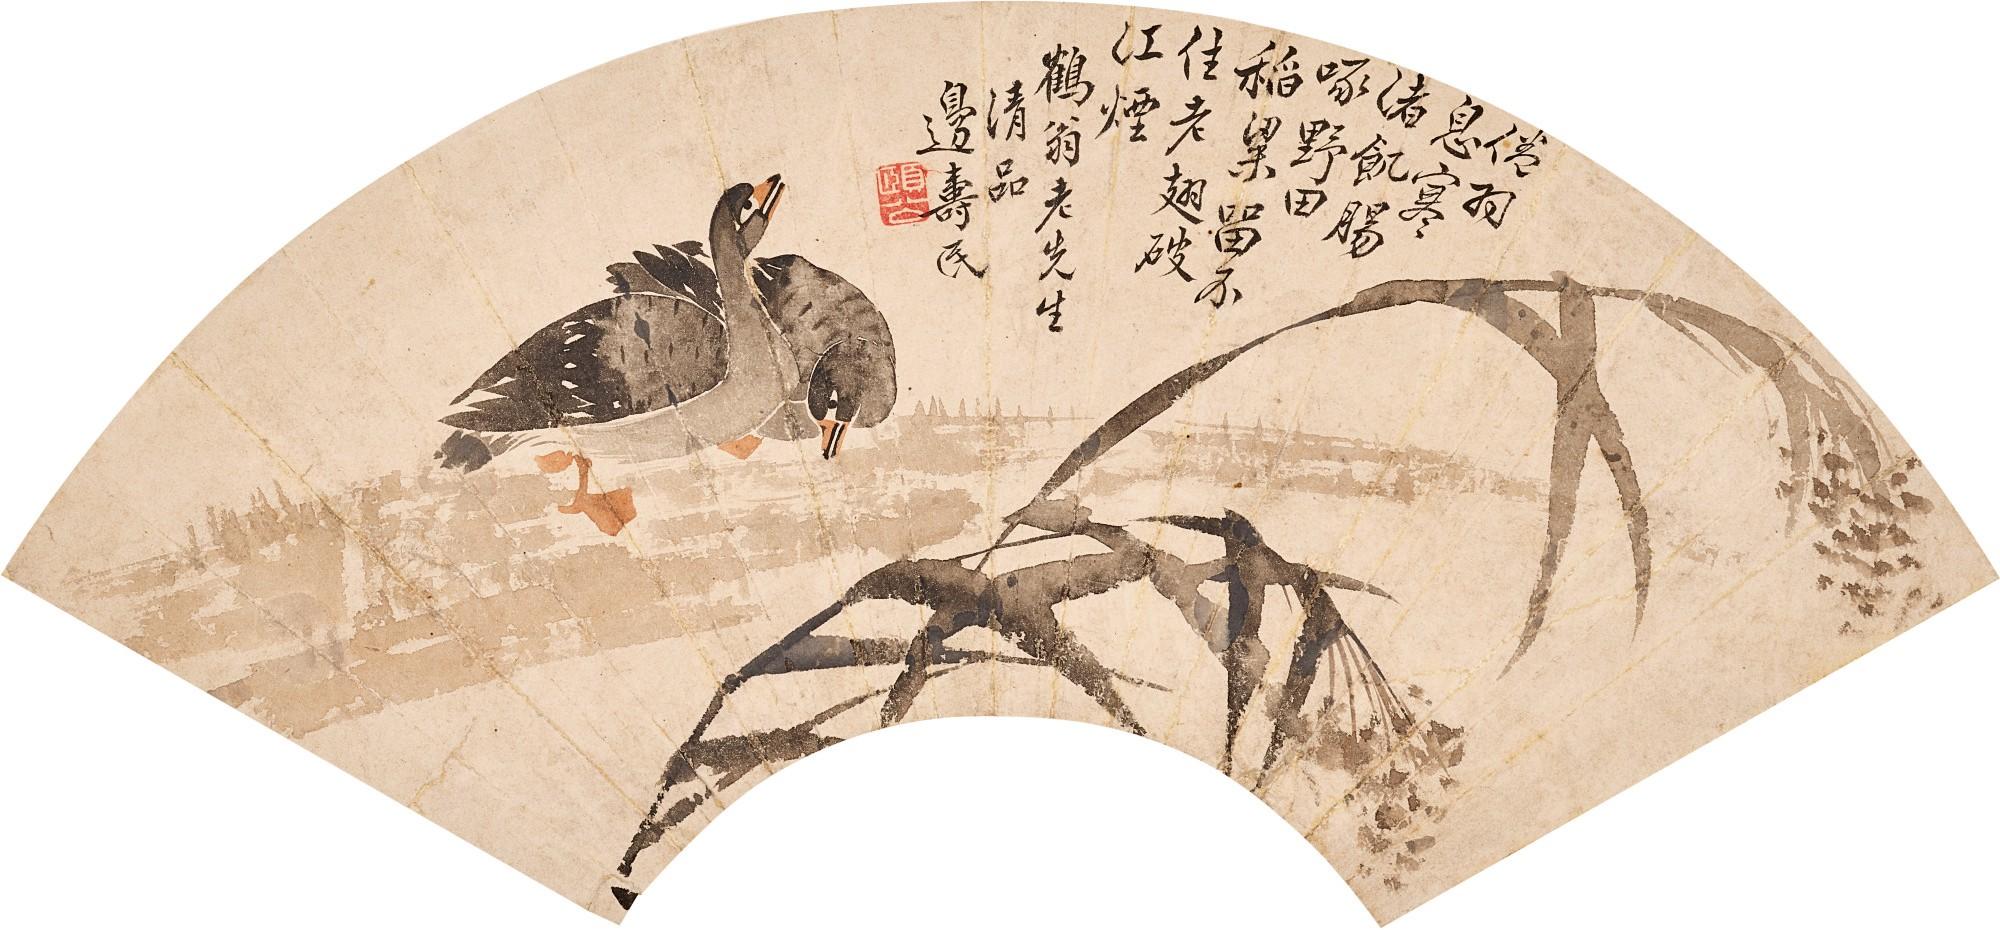 倦羽
息寒
渚飢腸
啄野田
稻粱留不
住老翅破
江煙
鶴翁老先生
清品
邊壽民
頤公